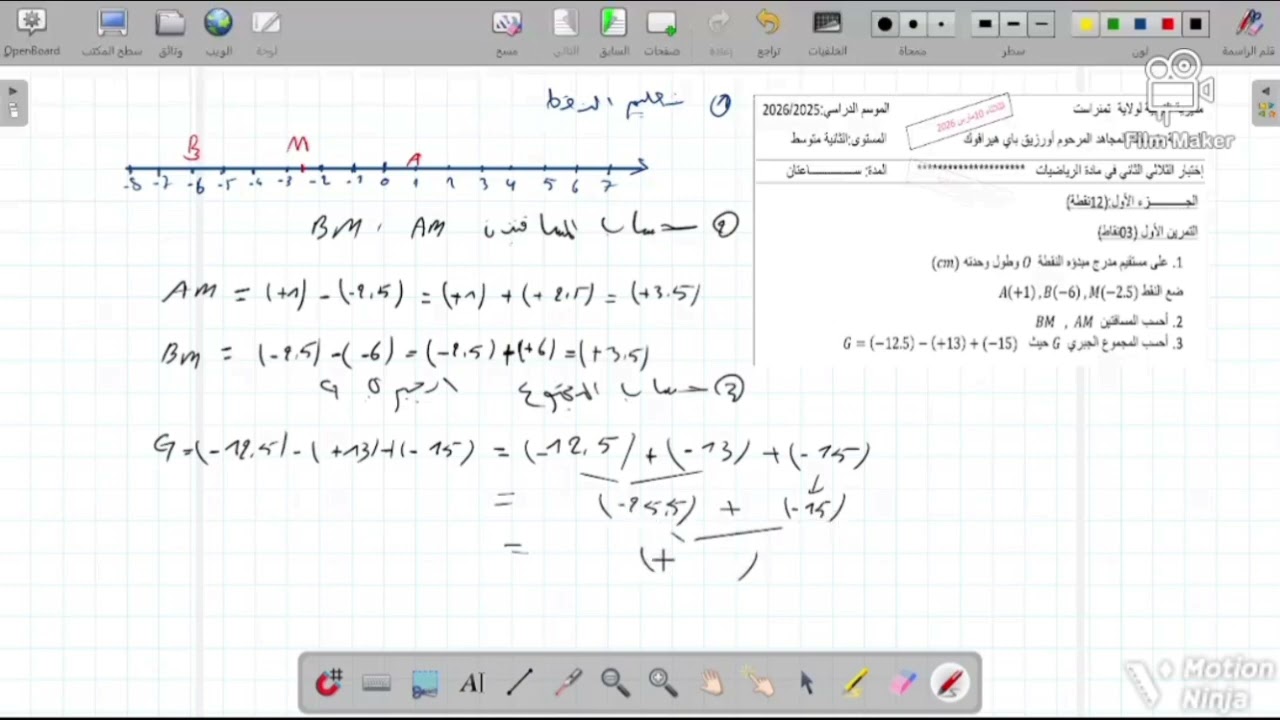 OpenBoard
سطح المكتب
وثائق
الويب
لوحة
مسح
التالي
السابق
صفحات
إعادة
تراجع
الخلفيات
ممحاة
سطر
لون
قلم الراسمة
لولاية تمنراست
الموسم الدراسي:2026/2025
المجاهد المرحوم أورزيق باي هيرافوك
المستوى:الثانية متوسط
إختبار الثلاثي الثاني في مادة الرياضيات ********************
المدة: ســـــــــاعتان
الجـــــــزء الأول:(12نقطة)
التمرين الأول (03نقاط)
1. على مستقيم مدرج مبدؤه النقطة O وطول وحدته (cm)
ضع النقط A(+1), B(−6), M(−2.5)
2. أحسب المسافتين BM , AM
3. أحسب المجموع الجبري G حيث G = (−12.5) − (+13) + (−15)
Film Maker
① تعليم النقط
B M A
-8 -7 -6 -5 -4 -3 -2 -1 0 1 2 3 4 5 6 7
② حساب المسافتين BM , AM
AM = (+1) - (-2.5) = (+1) + (+2.5) = (+3.5)
BM = (-2.5) - (-6) = (-2.5) + (+6) = (+3.5)
③ حساب المجموع الجبري G
G = (-12.5) - (+13) + (-15) = (-12.5) + (-13) + (-15)
= (-25.5) + (-15)
= (+ )
Motion
Ninja